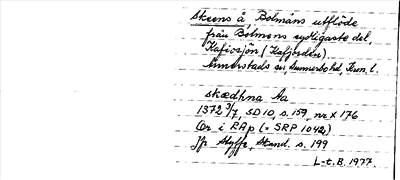 Skeens å, Bolmåns utflöde
från Bolmens sydligaste del,
Kafvosjön (Kafjorden)
Annerstads sn, Sunnerbo hd, Kron. l.
skædhna Aa
1372 3/7, SD 10, s. 159, nr X 176
Or i RAp (= SRP 1042)
Jfr Styffe, Skand. s. 199
L-t. B. 1977.